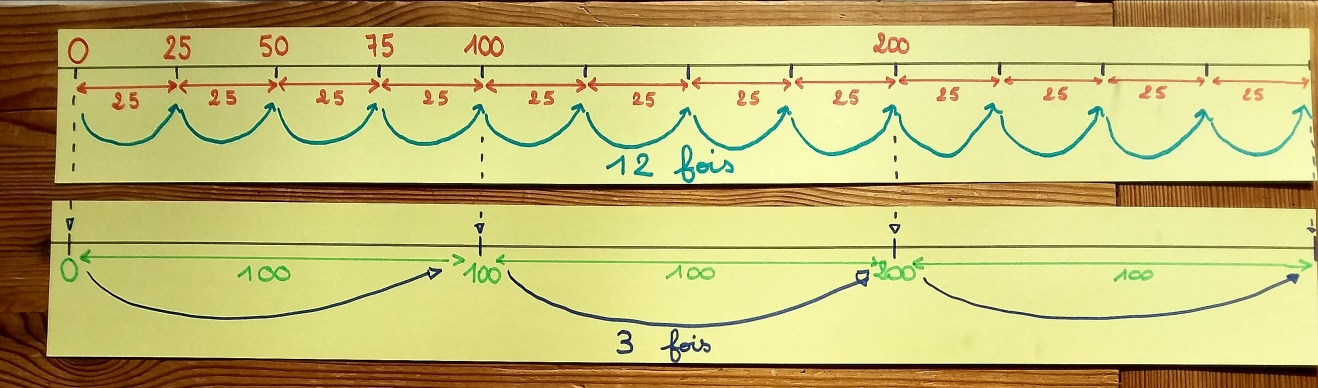 0 25 50 75 100 200
25 25 25 25 25 25 25 25 25 25 25 25
12 fois
0 100 100 100 200 100
3 fois